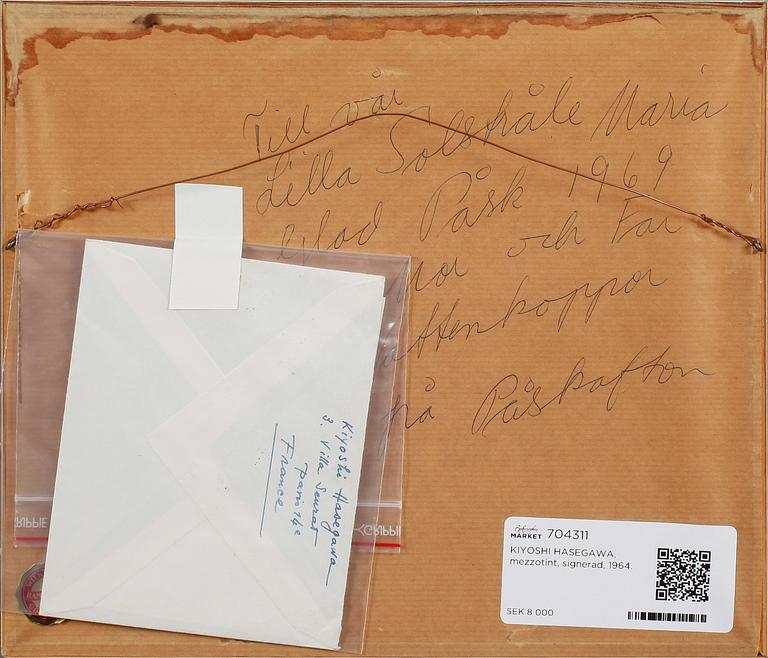 Till vår
Lilla Solstråle Maria
Glad Påsk 1969
Mor och Far
attenkoppor
på Påskafton
Kiyoshi Hasegawa
3. Villa Seurat
Paris 14e
France
GRIPPIE
GRIPPI
MARKET 704311
KIYOSHI HASEGAWA,
mezzotint, signerad, 1964.
SEK 8 000